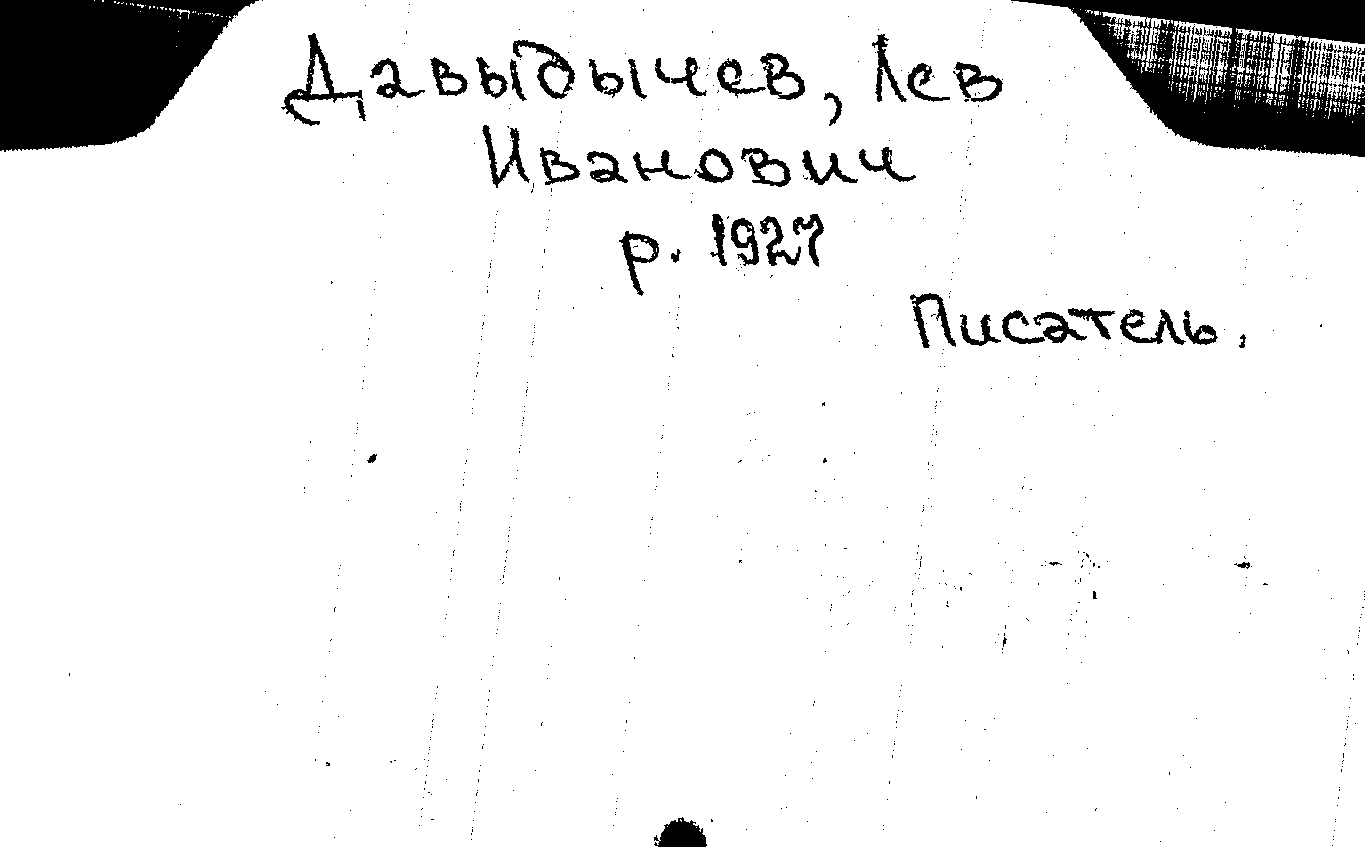 Давыдычев, Лев
Иванович
р. 1927
Писатель.